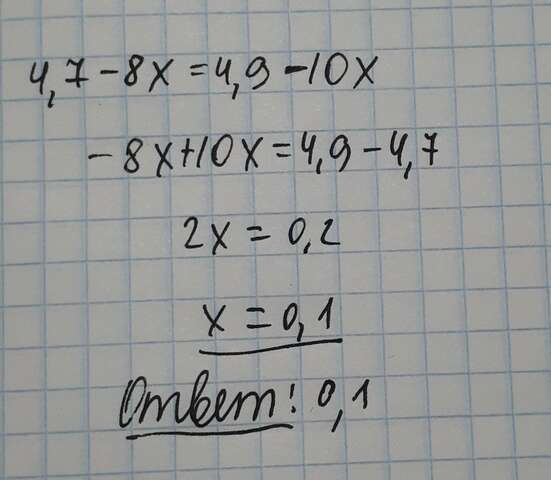 4,7-8x=4,9-10x
-8x+10x=4,9-4,7
2x=0,2
x=0,1
Ответ: 0,1